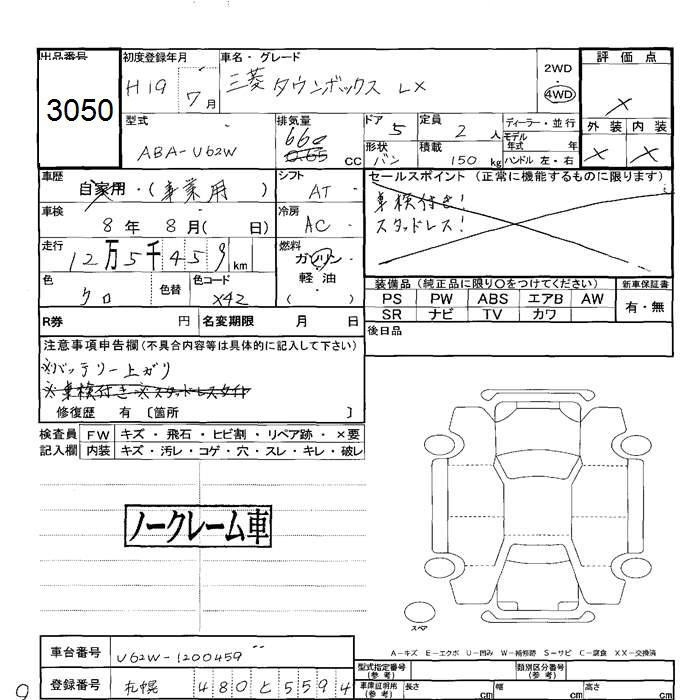 出品番号 初度登録年月 車名・グレード 2WD 評価点
3050 H19 7月 三菱 タウンボックス LX 4WD ×
型式 排気量 ドア 5 定員 2人 ディーラー・並行 外装 内装
ABA-U62W 660 0.65 CC 形状 バン 積載 150 kg モデル年式 年 × ×
ハンドル 左・右
車歴 自家用・(事業用) シフト AT セールスポイント (正常に機能するものに限ります)
車検 8年 8月( 日) 冷房 AC 車検付き!
スタッドレス!
走行 12万5千459km 燃料 ガソリン・軽油・( )
色 クロ 色替 色コード X42
装備品 (純正品に限り○をつけてください) 新車保証書
PS PW ABS エアB AW 有・無
SR ナビ TV カワ
R券 円 名変期限 月 日 後日品
注意事項申告欄(不具合内容等は具体的に記入して下さい)
※バッテリー上がり
※車検付き※スタッドレスタイヤ
修復歴 有 〔箇所 〕
検査員 FW キズ・飛石・ヒビ割・リペア跡・×要
記入欄 内装 キズ・汚レ・コゲ・穴・スレ・キレ・破レ
ノークレーム車
スペア
A-キズ E-エクボ U-凹み W-補修跡 S-サビ C-腐食 XX-交換済
車台番号 U62W-1200459
型式指定番号(参考) 類別区分番号(参考)
登録番号 札幌 480 と 5594
車庫証明用(参考) 長さ cm 幅 cm 高さ cm
9